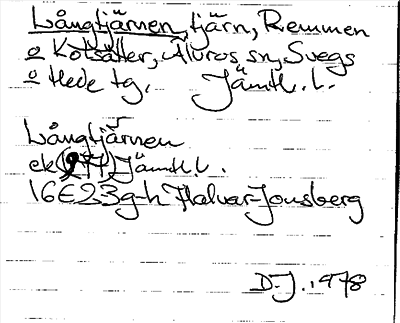 Långtjärnen, tjärn, Remmen
o Kotsäter, Älvros sn, Svegs
o Hede tg. Jämtl. L.
Långtjärnen
ek (977) Jämtl. L.
16E23g-h Halvar-Jonsberg
D.J. 1978